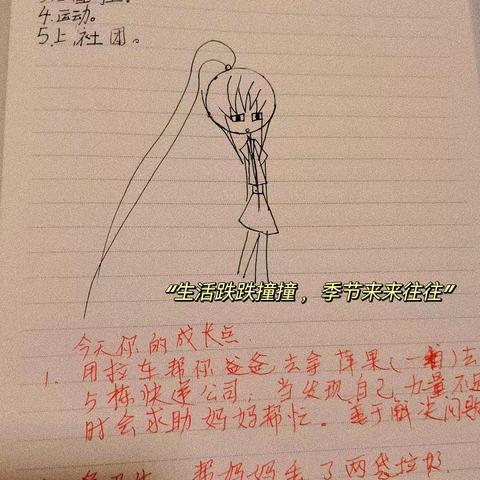 4.运动。
5.上社团。
“生活跌跌撞撞，季节来来往往”
今天你的成长点
1. 用拉车帮你爸爸去拿苹果(一箱)去
5栋快递公司，当发现自己力量不足
时会求助妈妈帮忙。善于解决问题
帮妈妈丢了两袋垃圾